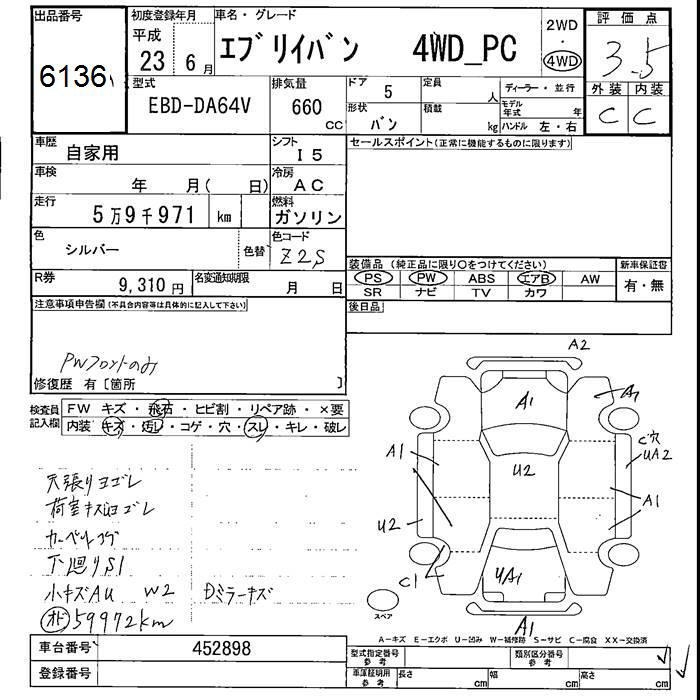 出品番号
6136
初度登録年月
平成
23 6月
車名・グレード
エブリイバン 4WD_PC
2WD
4WD
評価点
3.5
外装 内装
C C
型式
EBD-DA64V
排気量
660
CC
ドア 5
形状 バン
定員 人
積載 kg
ディーラー・並行
モデル年式 年
ハンドル 左・右
車歴
自家用
シフト
I5
車検
年 月( 日)
冷房
AC
走行
5万9千971 km
燃料
ガソリン
色
シルバー
色替
色コード
Z2S
R券
9,310円
名変通知期限
月 日
セールスポイント(正常に機能するものに限ります)
装備品(純正品に限り○をつけてください)
PS PW ABS エアB AW
SR ナビ TV カワ
新車保証書
有・無
後日品
注意事項申告欄(不具合内容等は具体的に記入して下さい)
PWフロントのみ
修復歴 有〔箇所 〕
検査員記入欄
FW キズ・飛石・ヒビ割・リペア跡・×要
内装 キズ・汚レ・コゲ・穴・スレ・キレ・破レ
天張りヨゴレ
荷室キズヨゴレ
カーペットコゲ
下廻りS1
小キズAU W2 Dミラーキズ
オド 59972km
A2
A1
A1
A1
U2
C穴
UA2
A1
U2
C1
UA1
A1
スペア
A-キズ E-エクボ U-凹み W-補修跡 S-サビ C-腐食 XX-交換済
車台番号 452898
登録番号
型式指定番号
参考
類別区分番号
参考
車庫証明用
参考
長さ cm
幅 cm
高さ cm